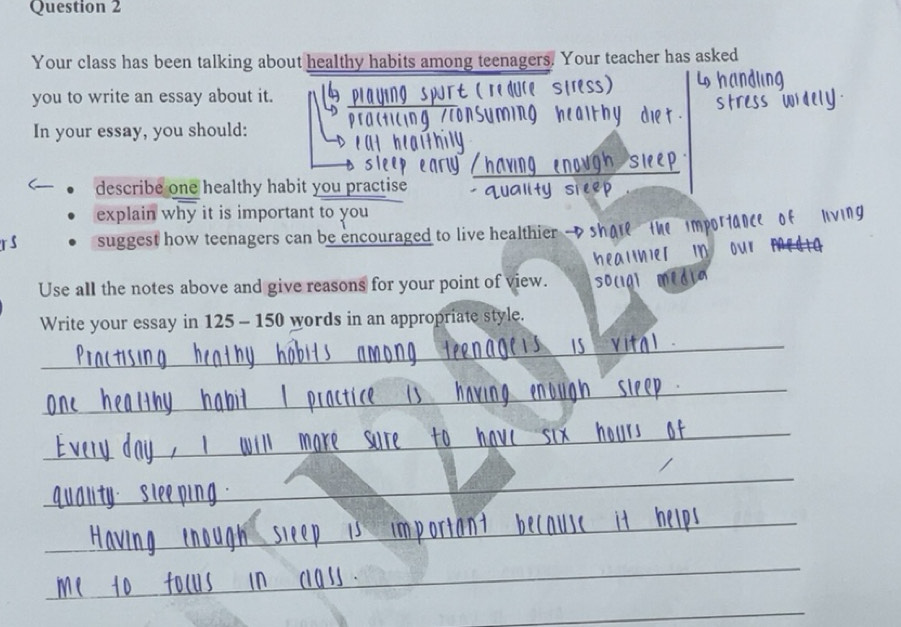 Question 2
Your class has been talking about healthy habits among teenagers. Your teacher has asked
you to write an essay about it.
In your essay, you should:
↳ playing sport (reduce stress)
↳ practicing /consuming healthy diet.
→ eat healthily
→ sleep early / having enough sleep.
- quality sleep.
↳ handling
stress widely.
← • describe one healthy habit you practise
• explain why it is important to you
• suggest how teenagers can be encouraged to live healthier → share the importance of living
healthier in our
social media
rs
Use all the notes above and give reasons for your point of view.
Write your essay in 125 – 150 words in an appropriate style.
Practising heathy habits among teenagers is vital.
One healthy habit I practice is having enough sleep.
Every day, I will make sure to have six hours of
quality sleeping.
Having enough sleep is important because it helps
me to focus in class.
U2025